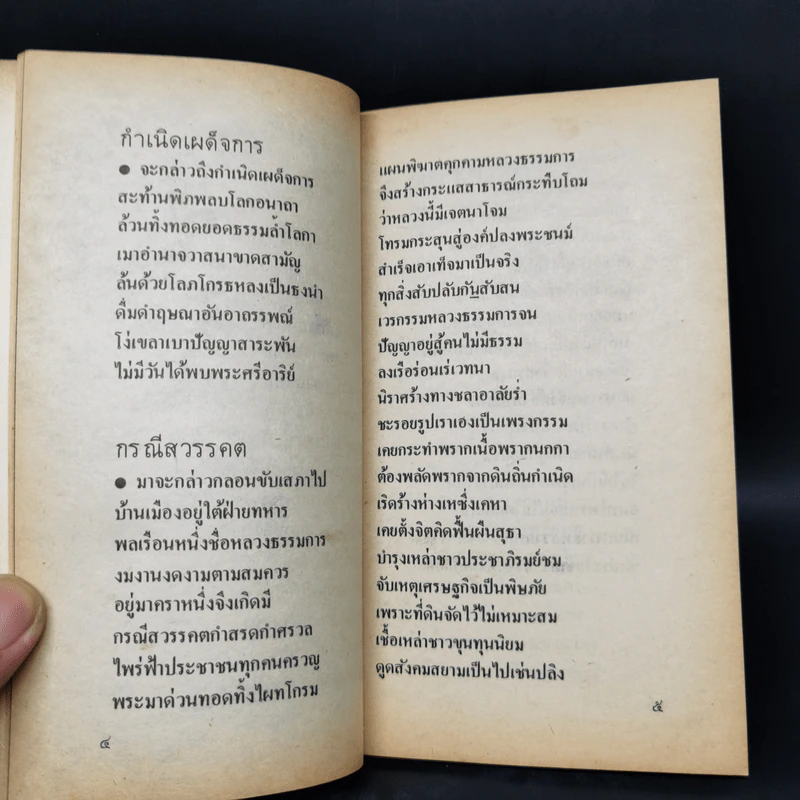 กำเนิดเผด็จการ
● จะกล่าวถึงกำเนิดเผด็จการ
สะท้านพิภพลบโลกอนาถา
ล้วนทิ้งทอดยอดธรรมล้ำโลกา
เมาอำนาจวาสนาขาดสามัญ
ล้นด้วยโลภโกรธหลงเป็นธงนำ
ดื่มด่ำฤษณาอันอาถรรพณ์
โง่เขลาเบาปัญญาสาระพัน
ไม่มีวันได้พบพระศรีอาริย์
กรณีสวรรคต
● มาจะกล่าวกลอนขับเสภาไป
บ้านเมืองอยู่ใต้ฝ่ายทหาร
พลเรือนหนึ่งชื่อหลวงธรรมการ
งมงานงดงามตามสมควร
อยู่มาคราหนึ่งจึงเกิดมี
กรณีสวรรคตกำสรดกำศรวล
ไพร่ฟ้าประชาชนทุกคนครวญ
พระมาด่วนทอดทิ้งไผทโกรม
๔
แผนพิฆาตคุกคามหลวงธรรมการ
จึงสร้างกระแสสาธารณ์กระทืบโถม
ว่าหลวงนี้มีเจตนาโจม
โทรมกระสุนสู่องค์ปลงพระชนม์
สำเร็จเอาเท็จมาเป็นจริง
ทุกสิ่งสับปลับกันสับสน
เวรกรรมหลวงธรรมการจน
ปัญญาอยู่สู้คนไม่มีธรรม
ลงเรือร่อนเร่เวทนา
นิราศร้างทางชลาอาลัยร่ำ
ชะรอยรูปเราเองเป็นเพรงกรรม
เคยกระทำพรากเนื้อพรากนกกา
ต้องพลัดพรากจากดินถิ่นกำเนิด
เริดร้างห่างเหซึ่งเคหา
เคยตั้งจิตคิดฟื้นผืนสุธา
บำรุงเหล่าชาวประชาภิรมย์ชม
จับเหตุเศรษฐกิจเป็นพิษภัย
เพราะที่ดินจัดไว้ไม่เหมาะสม
เชื้อเหล่าชาวขุนทุนนิยม
ดูดสังคมสยามเป็นไปเช่นปลิง
๕